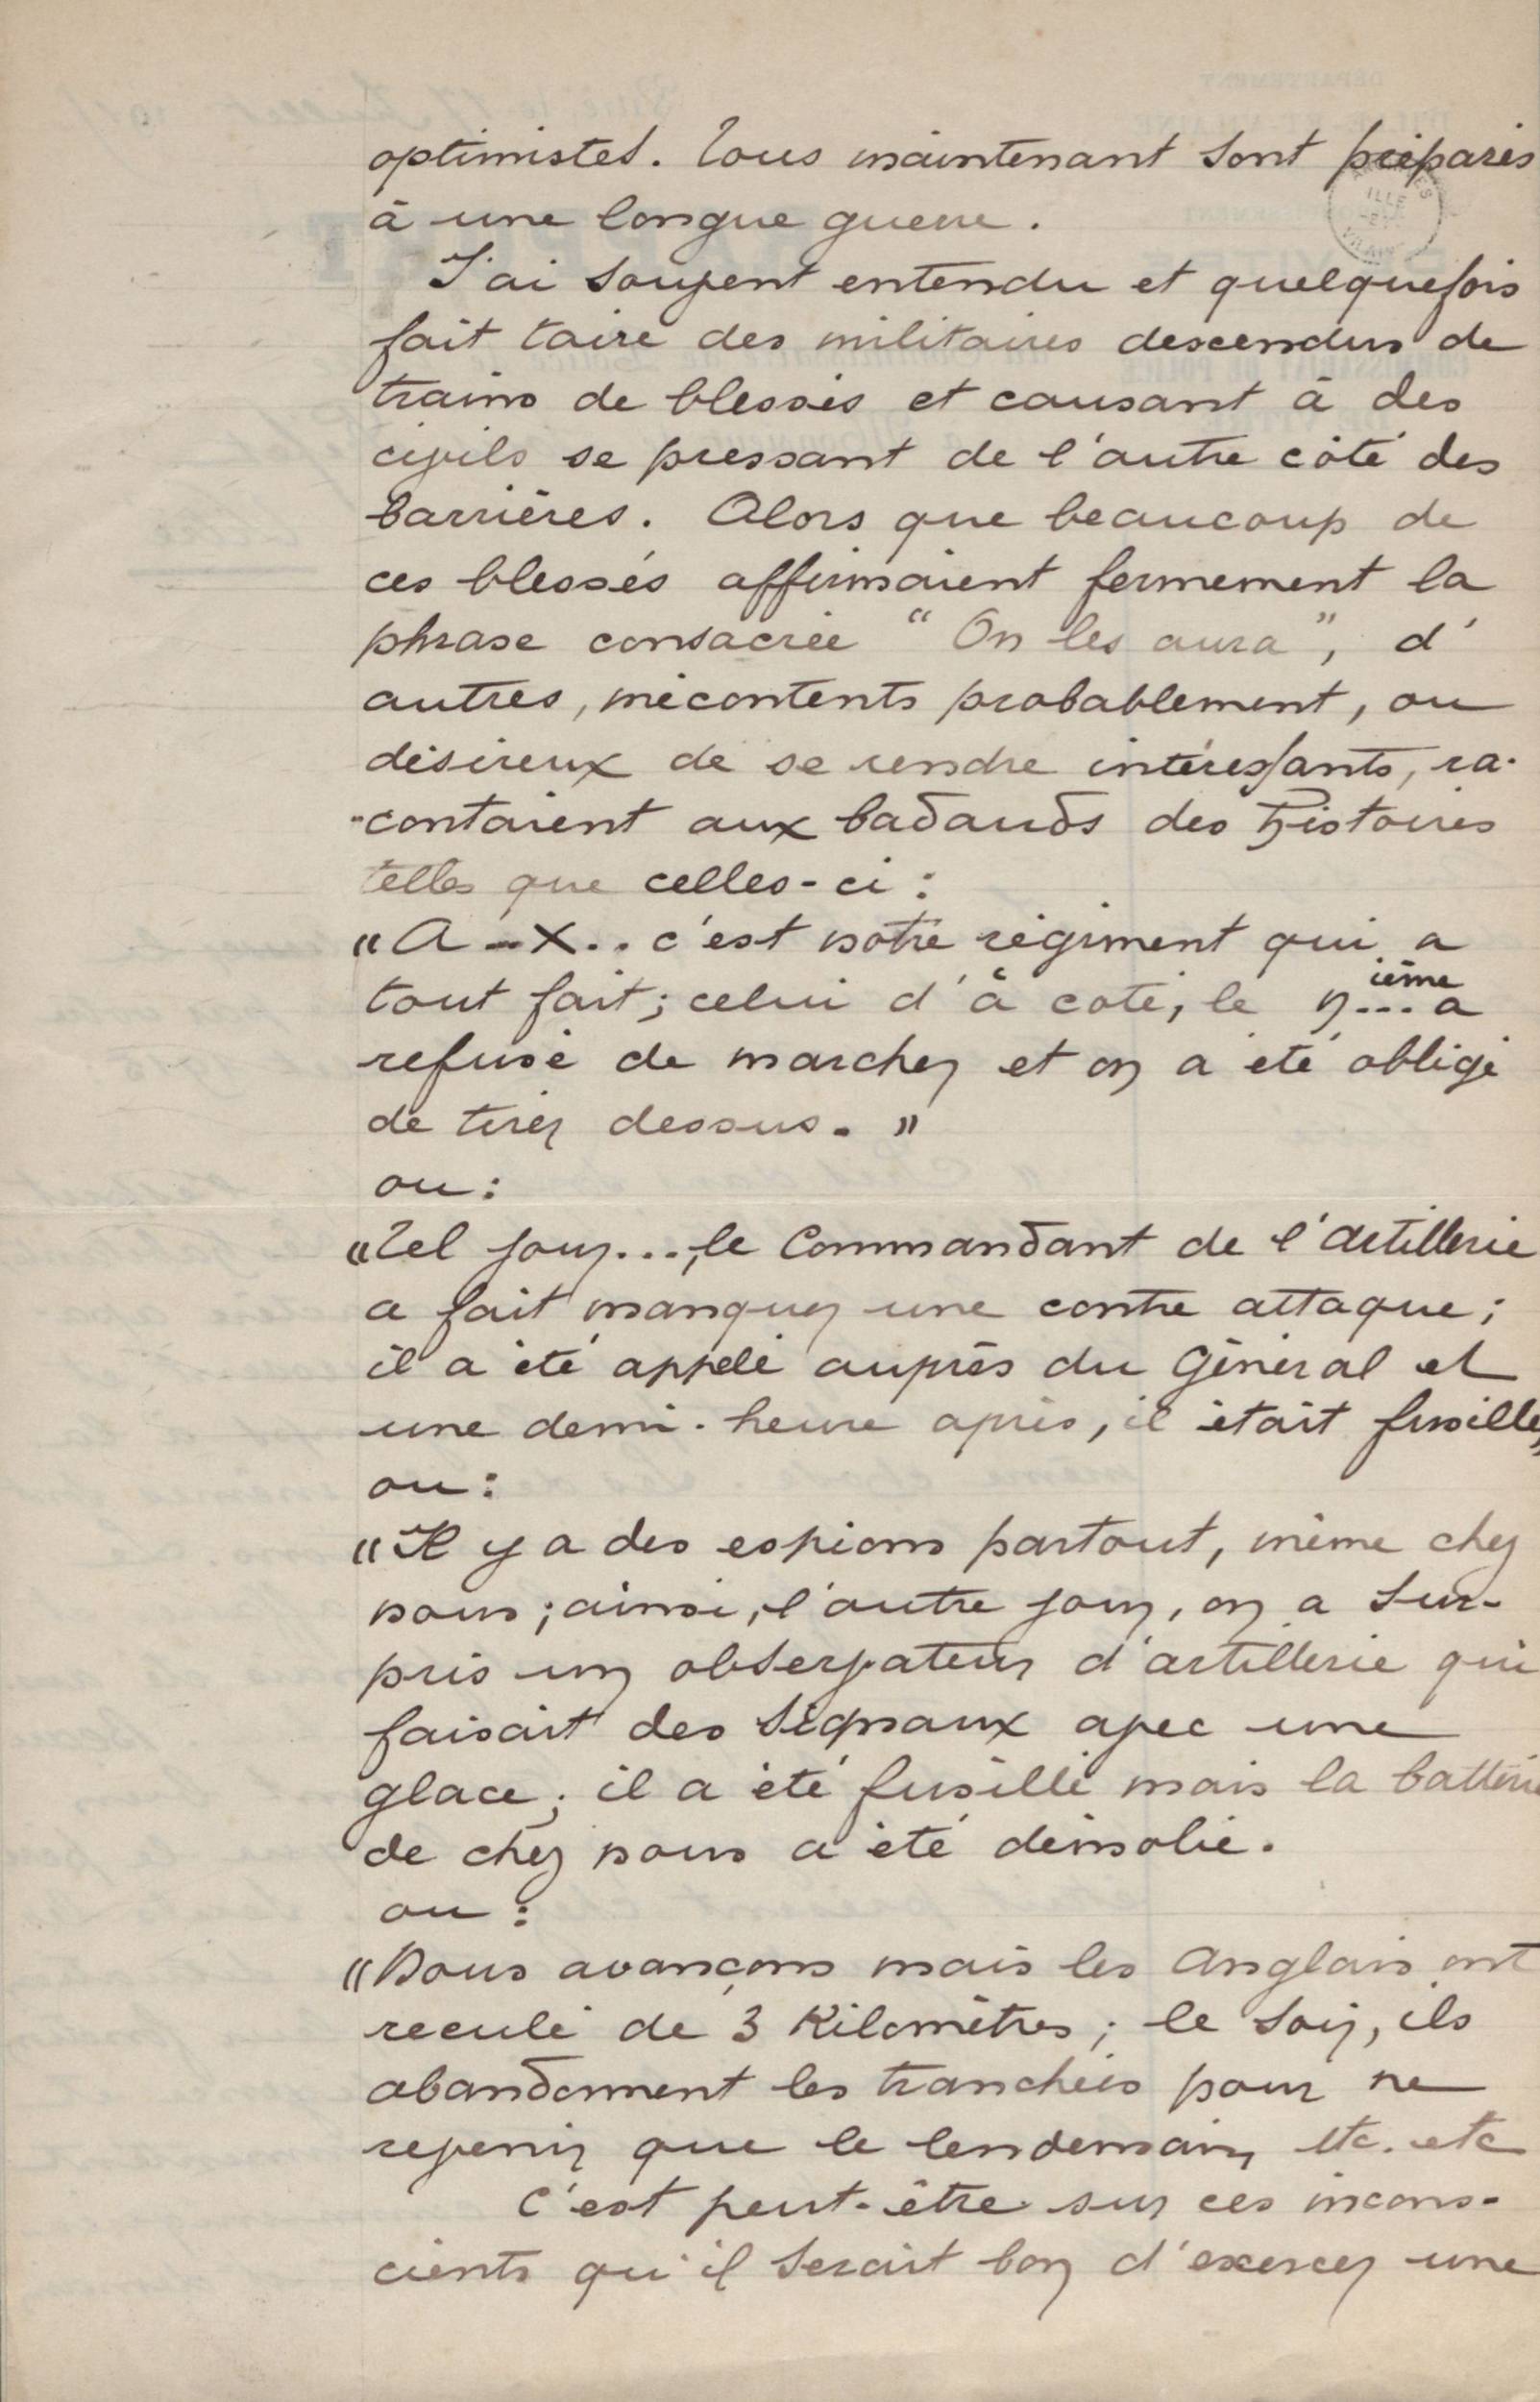 optimistes. Tous maintenant sont préparés
à une longue guerre.
J'ai souvent entendu et quelquefois
fait taire des militaires descendus de
trains de blessés et causant à des
civils se pressant de l'autre côté des
barrières. Alors que beaucoup de
ces blessés affirmaient fermement la
phrase consacrée "On les aura", d'
autres, mécontents probablement, ou
désireux de se rendre intéressants, ra-
-contaient aux badauds des histoires
telles que celles-ci :
"A - X... c'est notre régiment qui a
tout fait ; celui d'à coté, le n...ième a
refusé de marcher et on a été obligé
de tirer dessus. "
ou :
"Tel jour..., le Commandant de l'artillerie
a fait manquer une contre attaque ;
il a été appelé auprès du Général et
une demi-heure après, il était fusillé"
ou :
"Il y a des espions partout, même chez
nous ; ainsi, l'autre jour, on a sur-
pris un observateur d'artillerie qui
faisait des signaux avec une
glace ; il a été fusillé mais la batterie
de chez nous a été démolie.
ou :
"Nous avançons mais les Anglais ont
reculé de 3 Kilomètres ; le soir, ils
abandonnent les tranchées pour ne
revenir que le lendemain, etc. etc
C'est peut-être sur ces incons-
cients qu'il serait bon d'exercer une
ILLE
VILAINE